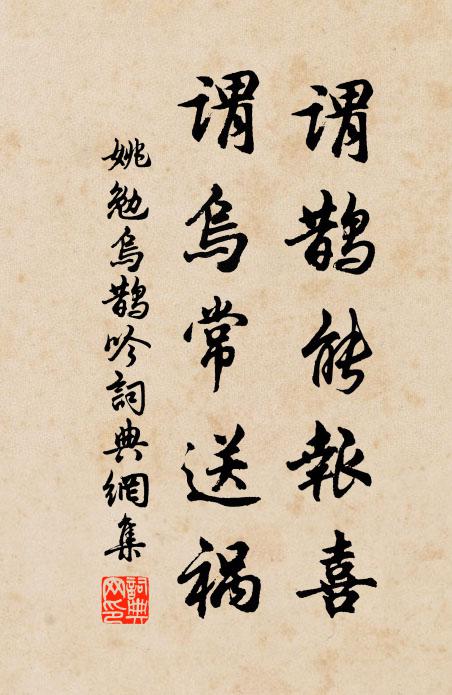 谓鹊能报喜
谓乌常送祸
姚勉乌鹊吟词典网集
词典网印